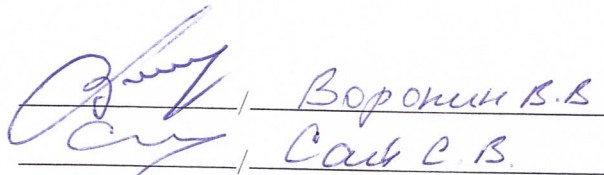 / Воронин В.В
/ Сай С.В.